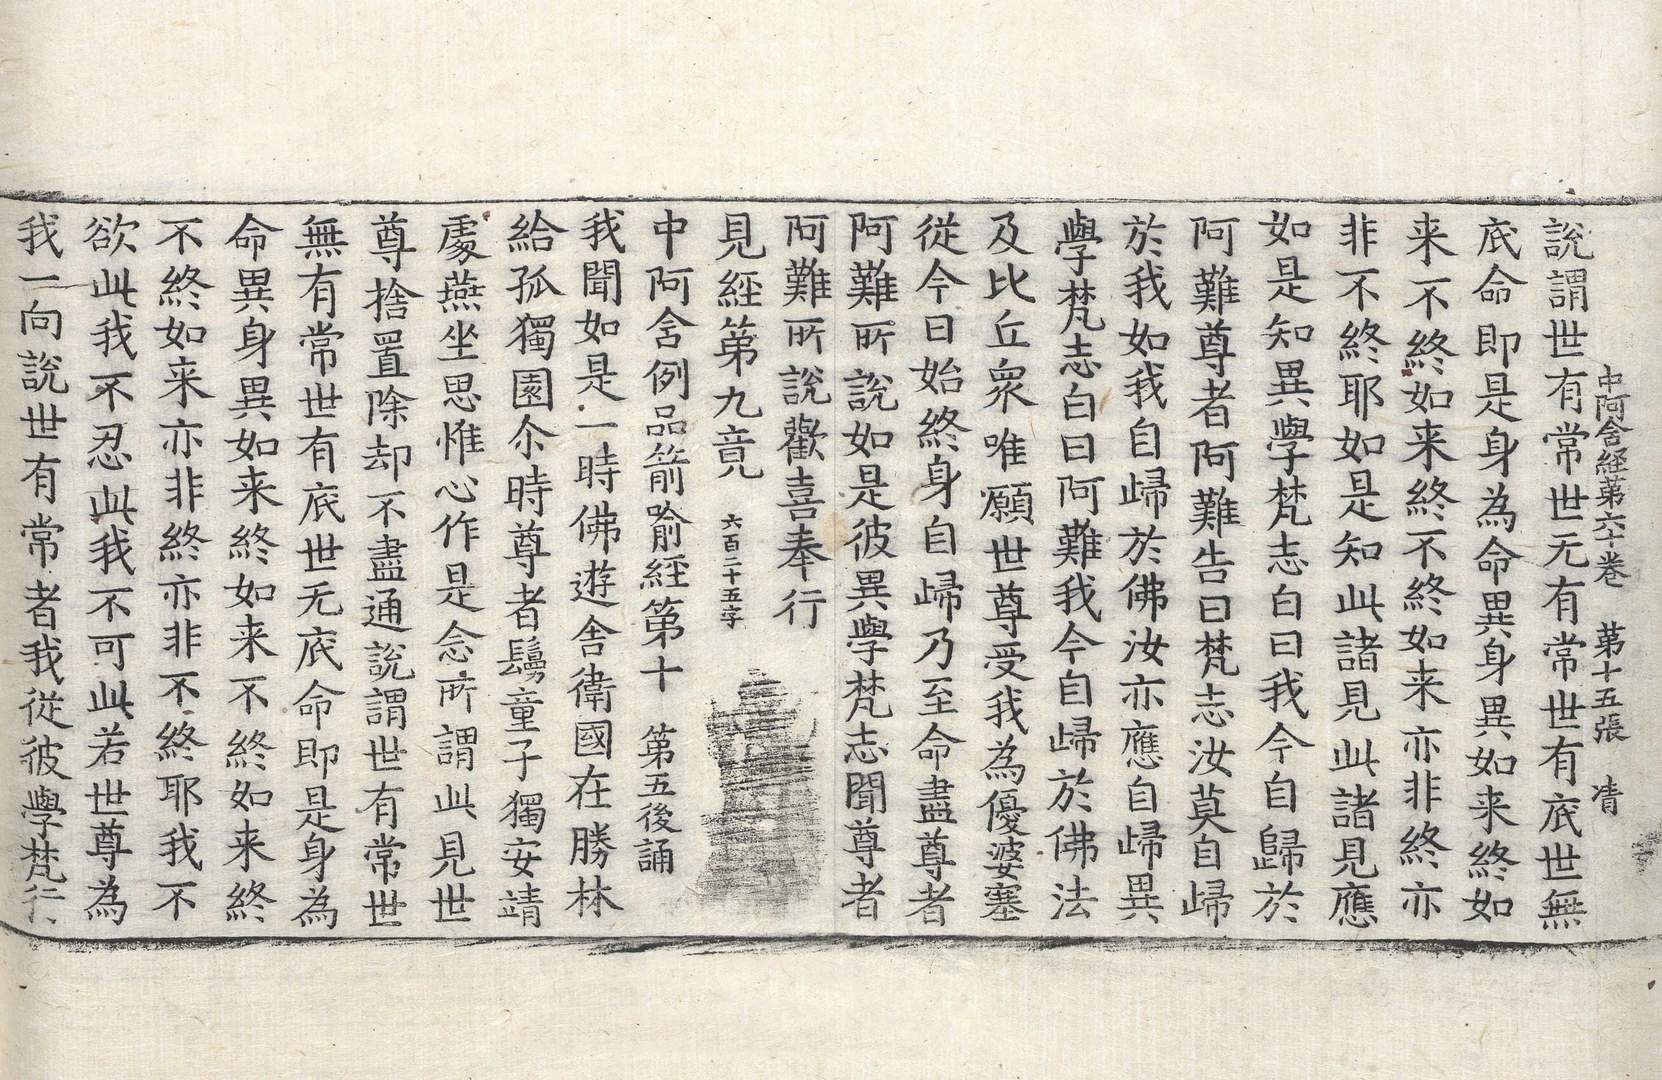 中阿含經第六十卷　第十五張　凊
說謂世有常世无有常世有底世無
底命即是身為命異身異如来終如
来不終如来終不終如来亦非終亦
非不終耶如是知此諸見此諸見應
如是知異學梵志白曰我今自歸於
阿難尊者阿難告曰梵志汝莫自歸
於我如我自歸於佛汝亦應自歸異
學梵志白曰阿難我今自歸於佛法
及比丘衆唯願世尊受我為優婆塞
從今日始終身自歸乃至命盡尊者
阿難所說如是彼異學梵志聞尊者
阿難所說歡喜奉行
見經第九竟　六百二十五字
中阿含例品箭喻經第十　第五後誦
我聞如是一時佛遊舍衛國在勝林
給孤獨園尒時尊者鬘童子獨安靖
處燕坐思惟心作是念所謂此見世
尊捨置除却不盡通說謂世有常世
無有常世有底世无底命即是身為
命異身異如来終如来不終如来終
不終如来亦非終亦非不終耶我不
欲此我不忍此我不可此若世尊為
我一向說世有常者我從彼學梵行